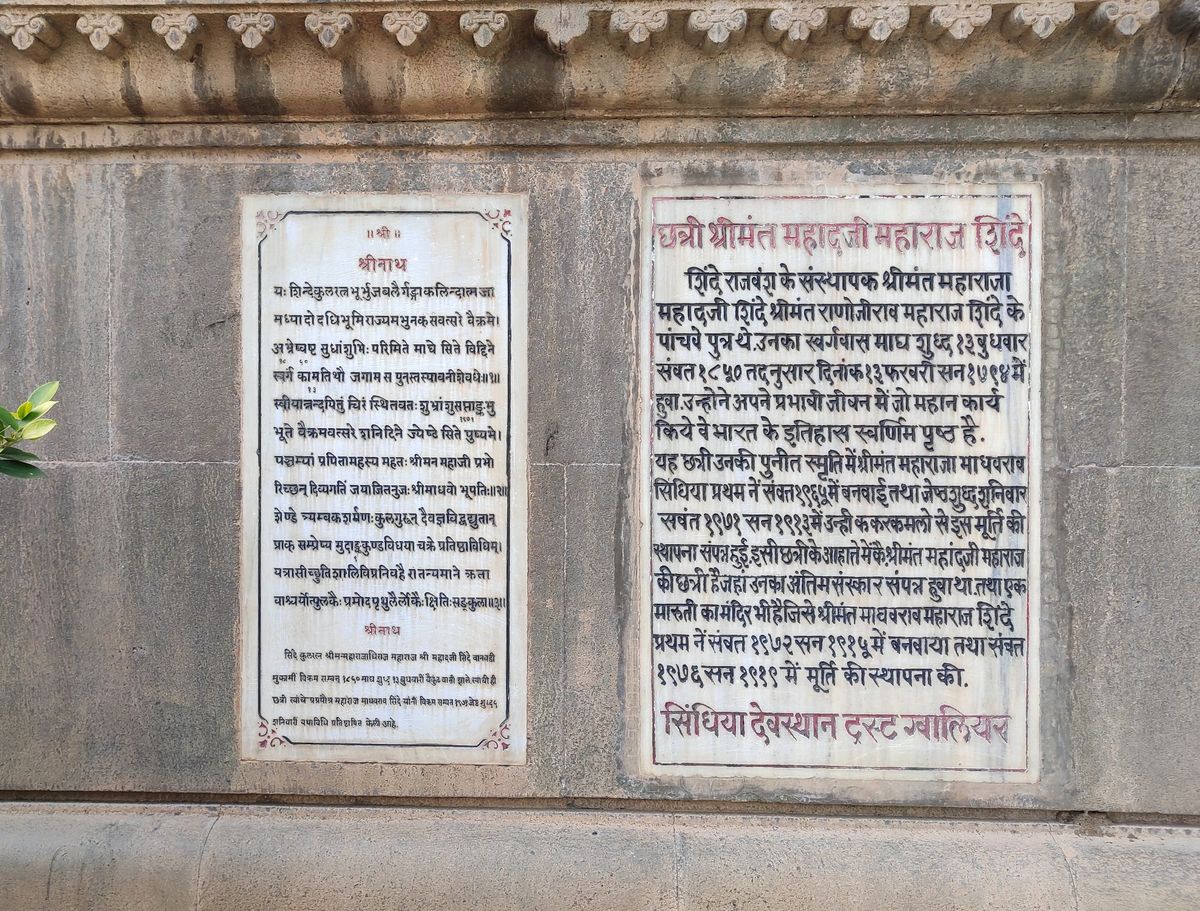 ॥ श्री ॥
श्रीनाथ
यः शिन्देकुलरत्न भूर्भुजबलैर्गङ्गाकलिन्दात्मजा
मध्यादोदधिभूमिराज्यमभुनक सवत्सरे वैक्रमे।
अभ्रेष्वष्ट सुधांशुभिः परिमिते माघे सिते विद्दिने
१८ ५०
स्वर्गं कामतिथौ जगाम स पुनस्तस्यावनीशेवधेः॥१॥
१३
स्वीयान्नन्दयितुं चिरं स्थितवतः शुभ्रांशुसप्ताङ्कभु
१९७१
भूते वैक्रमवत्सरे शनिदिने ज्येष्ठे सिते पुष्यभे।
पञ्चम्यां प्रपितामहस्य महतः श्रीमन महाजी प्रभो
रिच्छन् दिव्यगतिं जयाजितनुजः श्रीमाधवो भूपतिः॥२॥
शेण्डे त्र्यम्बकशर्मणः कुलगुरून् दैवज्ञविद्वद्युतान्
प्राक् सम्प्रेष्य मुदाङ्ककुण्डविधया चक्रे प्रतिष्ठाविधिम्।
यत्रासीच्छुतिशालिविप्रनिवहै रातन्यमाने क्रता
वाश्चर्योत्फुलकैः प्रमोदपृथुलैर्लोकैः क्षितिः सङ्कुला॥३॥
श्रीनाथ
शिंदे कुलरत्न श्रीमन्महाराजाधिराज महाराज श्री महादजी शिंदे वानवडी
मुक्कामीं विक्रम सम्वत् १८५० माघ शुध्द १३ बुधवारीं वैकुंठवासी झाले. त्यांची ही
छत्री त्यांचे प्रपौत्र महाराज माधवराव शिंदे यांनी विक्रम सम्वत १९७१ जेष्ठ शुध्द ५
शनिवारीं यथाविधि प्रतिष्ठापित केली आहे.
छत्री श्रीमंत महादजी महाराज शिंदे
शिंदे राजवंश के संस्थापक श्रीमंत महाराजा
महादजी शिंदे श्रीमंत राणोजीराव महाराज शिंदे के
पांचवे पुत्र थे. उनका स्वर्गवास माघ शुध्द १३ बुधवार
संवत १८५० तदनुसार दिनांक १३ फरबरी सन १७९४ में
हुवा. उन्होने अपने प्रभावी जीवन में जो महान कार्य
किये वे भारत के इतिहास स्वर्णिम पृष्ठ है.
यह छत्री उनकी पुनीत स्मृति में श्रीमंत महाराजा माधवराव
सिंधिया प्रथम नें संवत १९६५ में बनवाई तथा जेष्ठ शुध्द शनिवार
सवंत १९७१ सन १९१३ में उन्ही क करकमलो से इस मूर्ति की
स्थापना संपन्न हुई. इसी छत्री के आहाते में कै. श्रीमंत महांदजी महाराज
की छत्री है जहां उनका अंतिम संस्कार संपन्न हुवा था. तथा एक
मारुती का मंदिर भी है जिसे श्रीमंत माधवराव महाराज शिंदे
प्रथम नें संवत १९७२ सन १९१५ में बनवाया तथा संवत
१९७६ सन १९१९ में मूर्ति की स्थापना की.
सिंधिया देवस्थान ट्रस्ट ग्वालियर